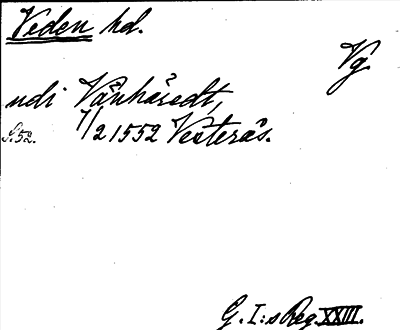 Veden hd.
Vg
undi Vånhäredt,
S. 52. 7/2 1552 Vesterås.
G. I:s Reg. XXIII.